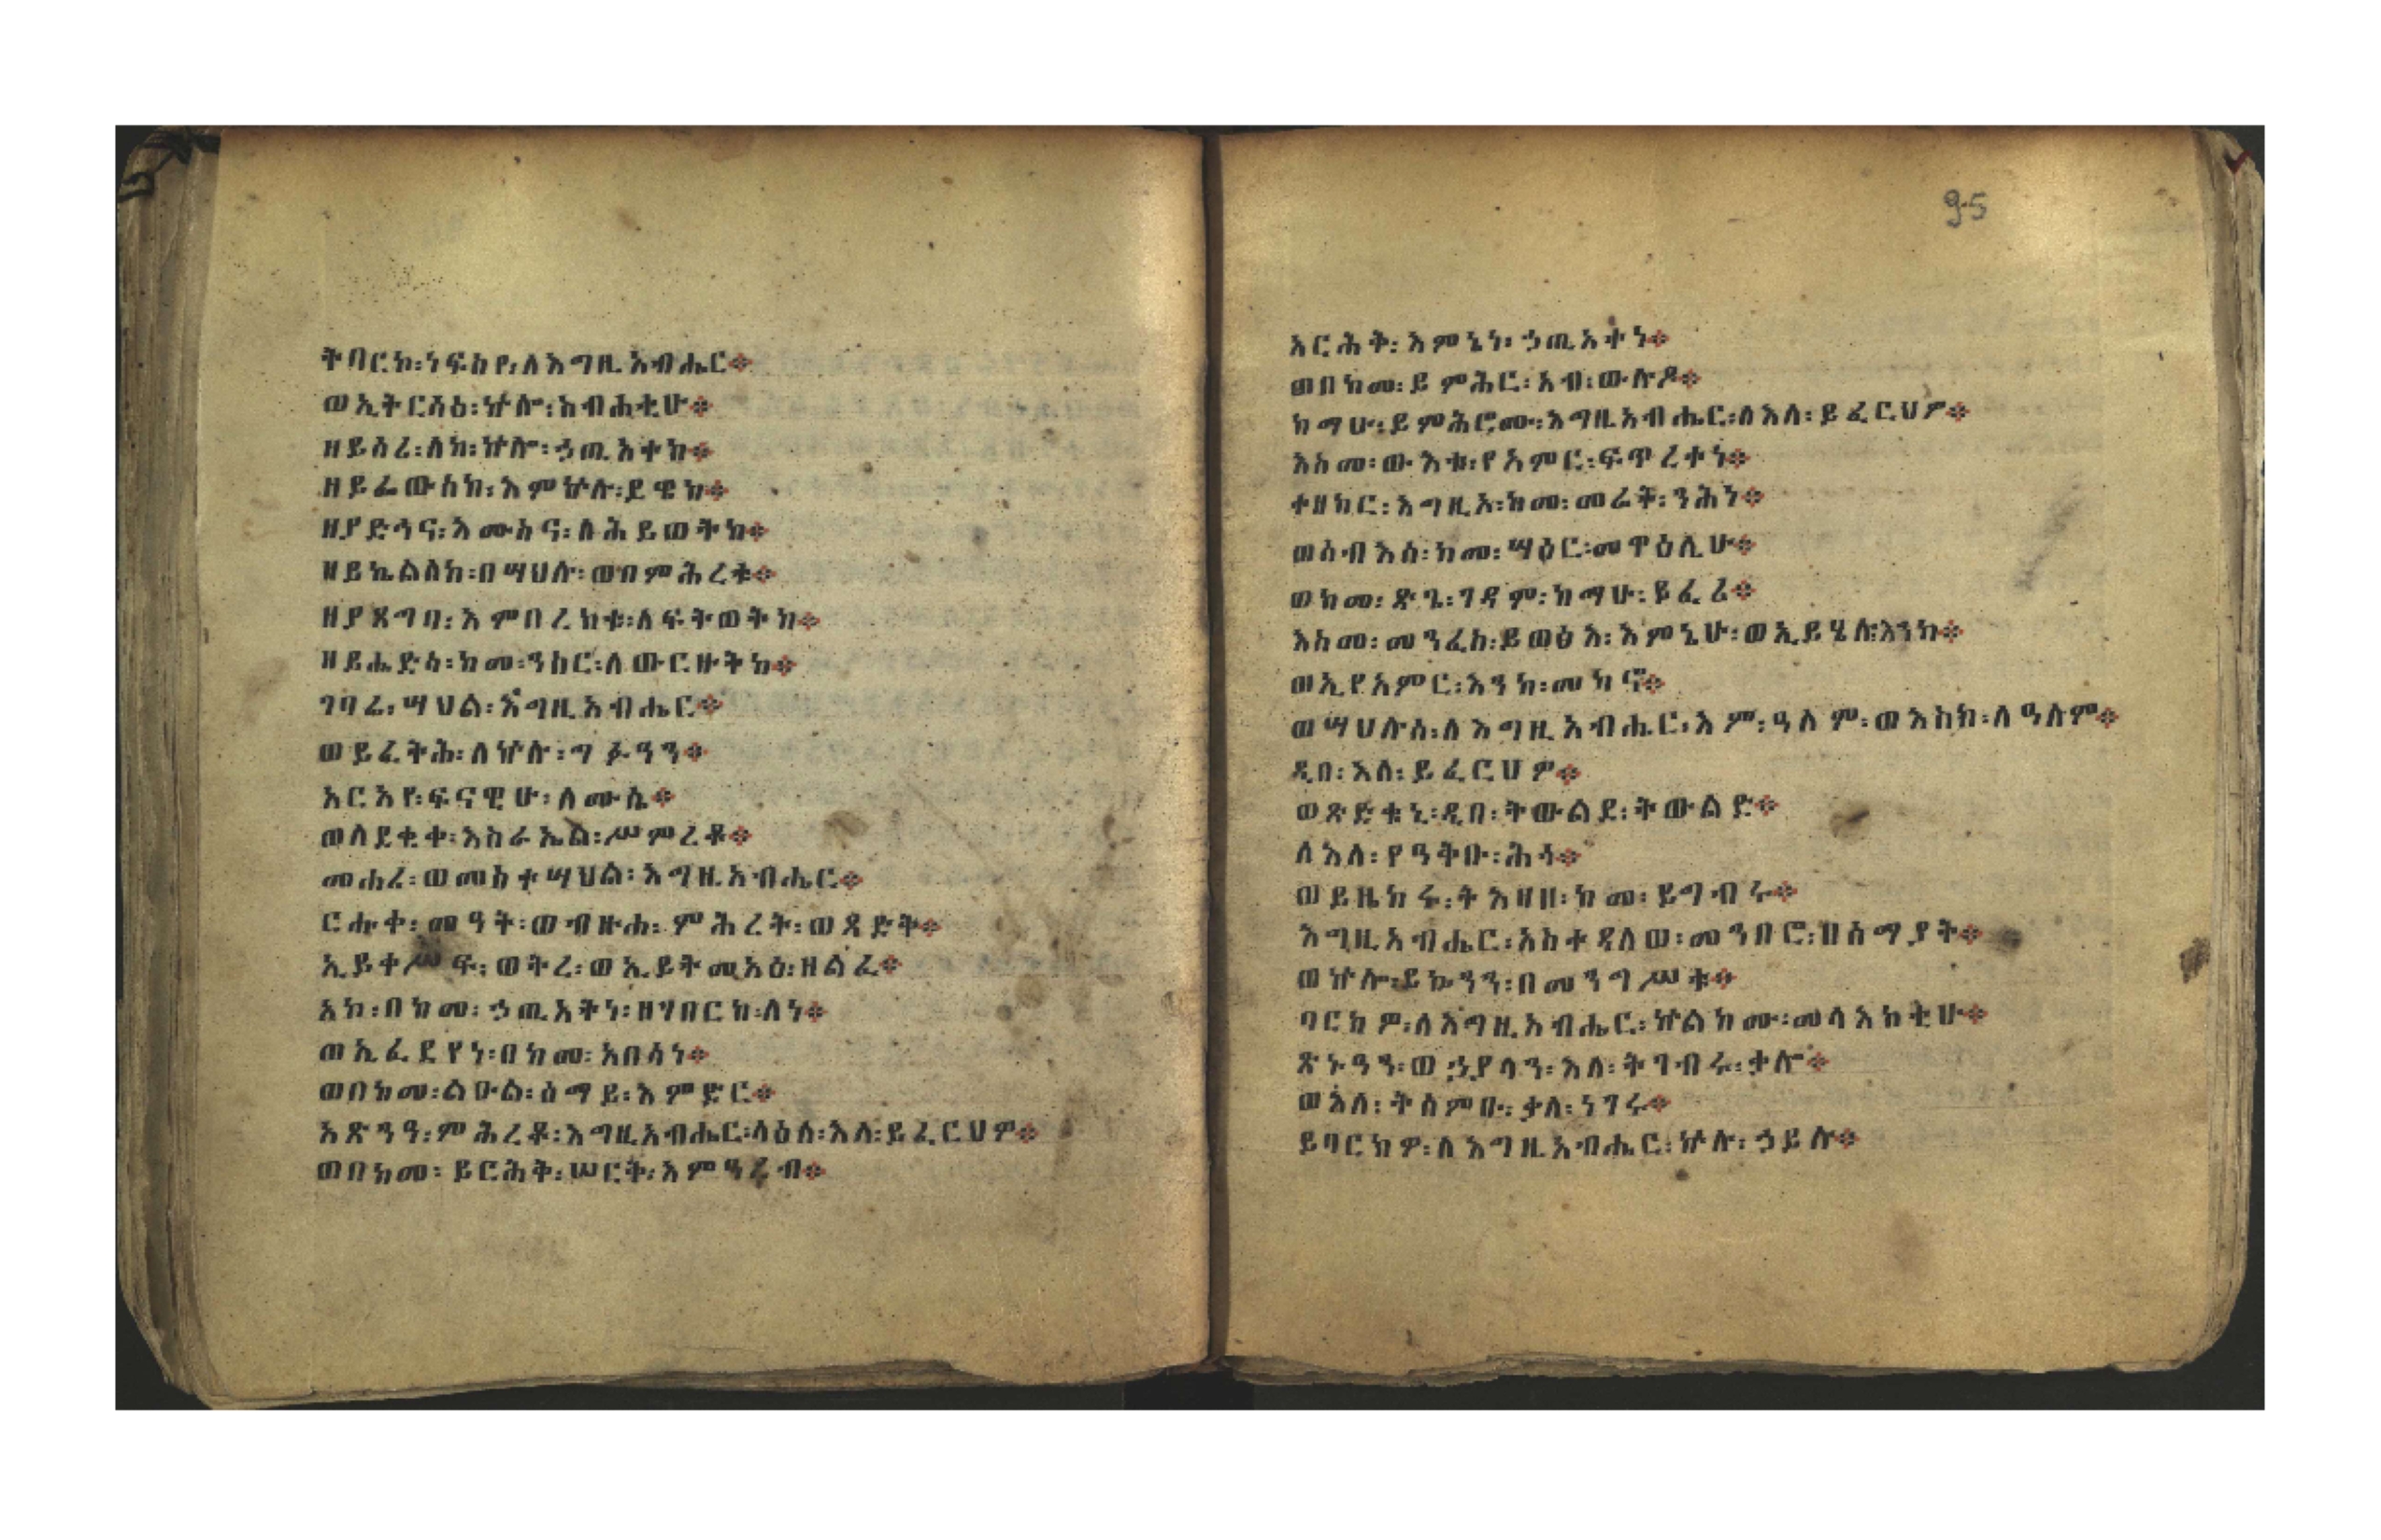 ትባርክ፡ነፍስየ፡ለእግዚአብሔር፨
ወኢትርሳዕ፡ኵሎ፡ስብሒቲሁ፨
ዘይሰሪ፡ለከ፡ኵሎ፡ኃጢአተከ፨
ዘይፌውሰከ፡እምኵሉ፡ደዌከ፨
ዘያድኅና፡እሙስና፡ለሕይወትከ፨
ዘይኬልለከ፡በሣህሉ፡ወበምሕረቱ፨
ዘያጸግባ፡እምበረከቱ፡ለፍትወትከ፨
ዘይሔድስ፡ከመ፡ንስር፡ለውርዙትከ፨
ገባሬ፡ሣህል፡እግዚአብሔር፨
ወይፈትሕ፡ለኵሉ፡ግፉዓን፨
አርአየ፡ፍናዊሁ፡ለሙሴ፨
ወለደቂቀ፡እስራኤል፡ሥምረቶ፨
መሐሪ፡ወመስተሣህል፡እግዚአብሔር፨
ርሑቀ፡መዓት፡ወብዙሐ፡ምሕረት፡ወጻድቅ፨
ኢይቀሥፍ፡ወትረ፡ወኢይትሜአዕ፡ዘልፈ፨
አኮ፡በከመ፡ኃጢአትነ፡ዘገበርከ፡ለነ፨
ወኢፈደየነ፡በከመ፡አበሳነ፨
ወበከመ፡ልዑል፡ሰማይ፡እምድር፨
አጽንዓ፡ምሕረቶ፡እግዚአብሔር፡ላዕለ፡እለ፡ይፈርህዎ፨
ወበከመ፡ይርሕቅ፡ሠርቅ፡እምዓረብ፨
95
አርሕቅ፡እምኔነ፡ኃጢአተነ፨
ወበከመ፡ይምሕር፡አብ፡ውሉዶ፨
ከማሁ፡ይምሕሮሙ፡እግዚአብሔር፡ለእለ፡ይፈርህዎ፨
እስመ፡ውእቱ፡የአምር፡ፍጥረተነ፨
ተዘከር፡እግዚኦ፡ከመ፡መሬት፡ንሕነ፨
ወሰብእሰ፡ከመ፡ሣዕር፡መዋዕሊሁ፨
ወከመ፡ጽጌ፡ገዳም፡ከማሁ፡ይፈሪ፨
እስመ፡መንፈስ፡ይወፅእ፡እምኔሁ፡ወኢይሄሉ፡እንከ፨
ወኢየአምር፡እንከ፡መካኖ፨
ወሣህሉሰ፡ለእግዚአብሔር፡እም፡ዓለም፡ወእስከ፡ለዓለም፨
ዲበ፡እለ፡ይፈርህዎ፨
ወጽድቁኒ፡ዲበ፡ትውልደ፡ትውልድ፨
ለእለ፡የዓቅቡ፡ሕጎ፨
ወይዜከሩ፡ትእዛዘ፡ከመ፡ይግብሩ፨
እግዚአብሔር፡አስተዳለወ፡መንበሮ፡በሰማያት፨
ወኵሎ፡ይኴንን፡በመንግሥቱ፨
ባርክዎ፡ለእግዚአብሔር፡ኵልክሙ፡መላእክቲሁ፨
ጽኑዓን፡ወኃያላን፡እለ፡ትገብሩ፡ቃሎ፨
ወእለ፡ትሰምዑ፡ቃለ፡ነገሩ፨
ይባርክዎ፡ለእግዚአብሔር፡ኵሉ፡ኃይሉ፨